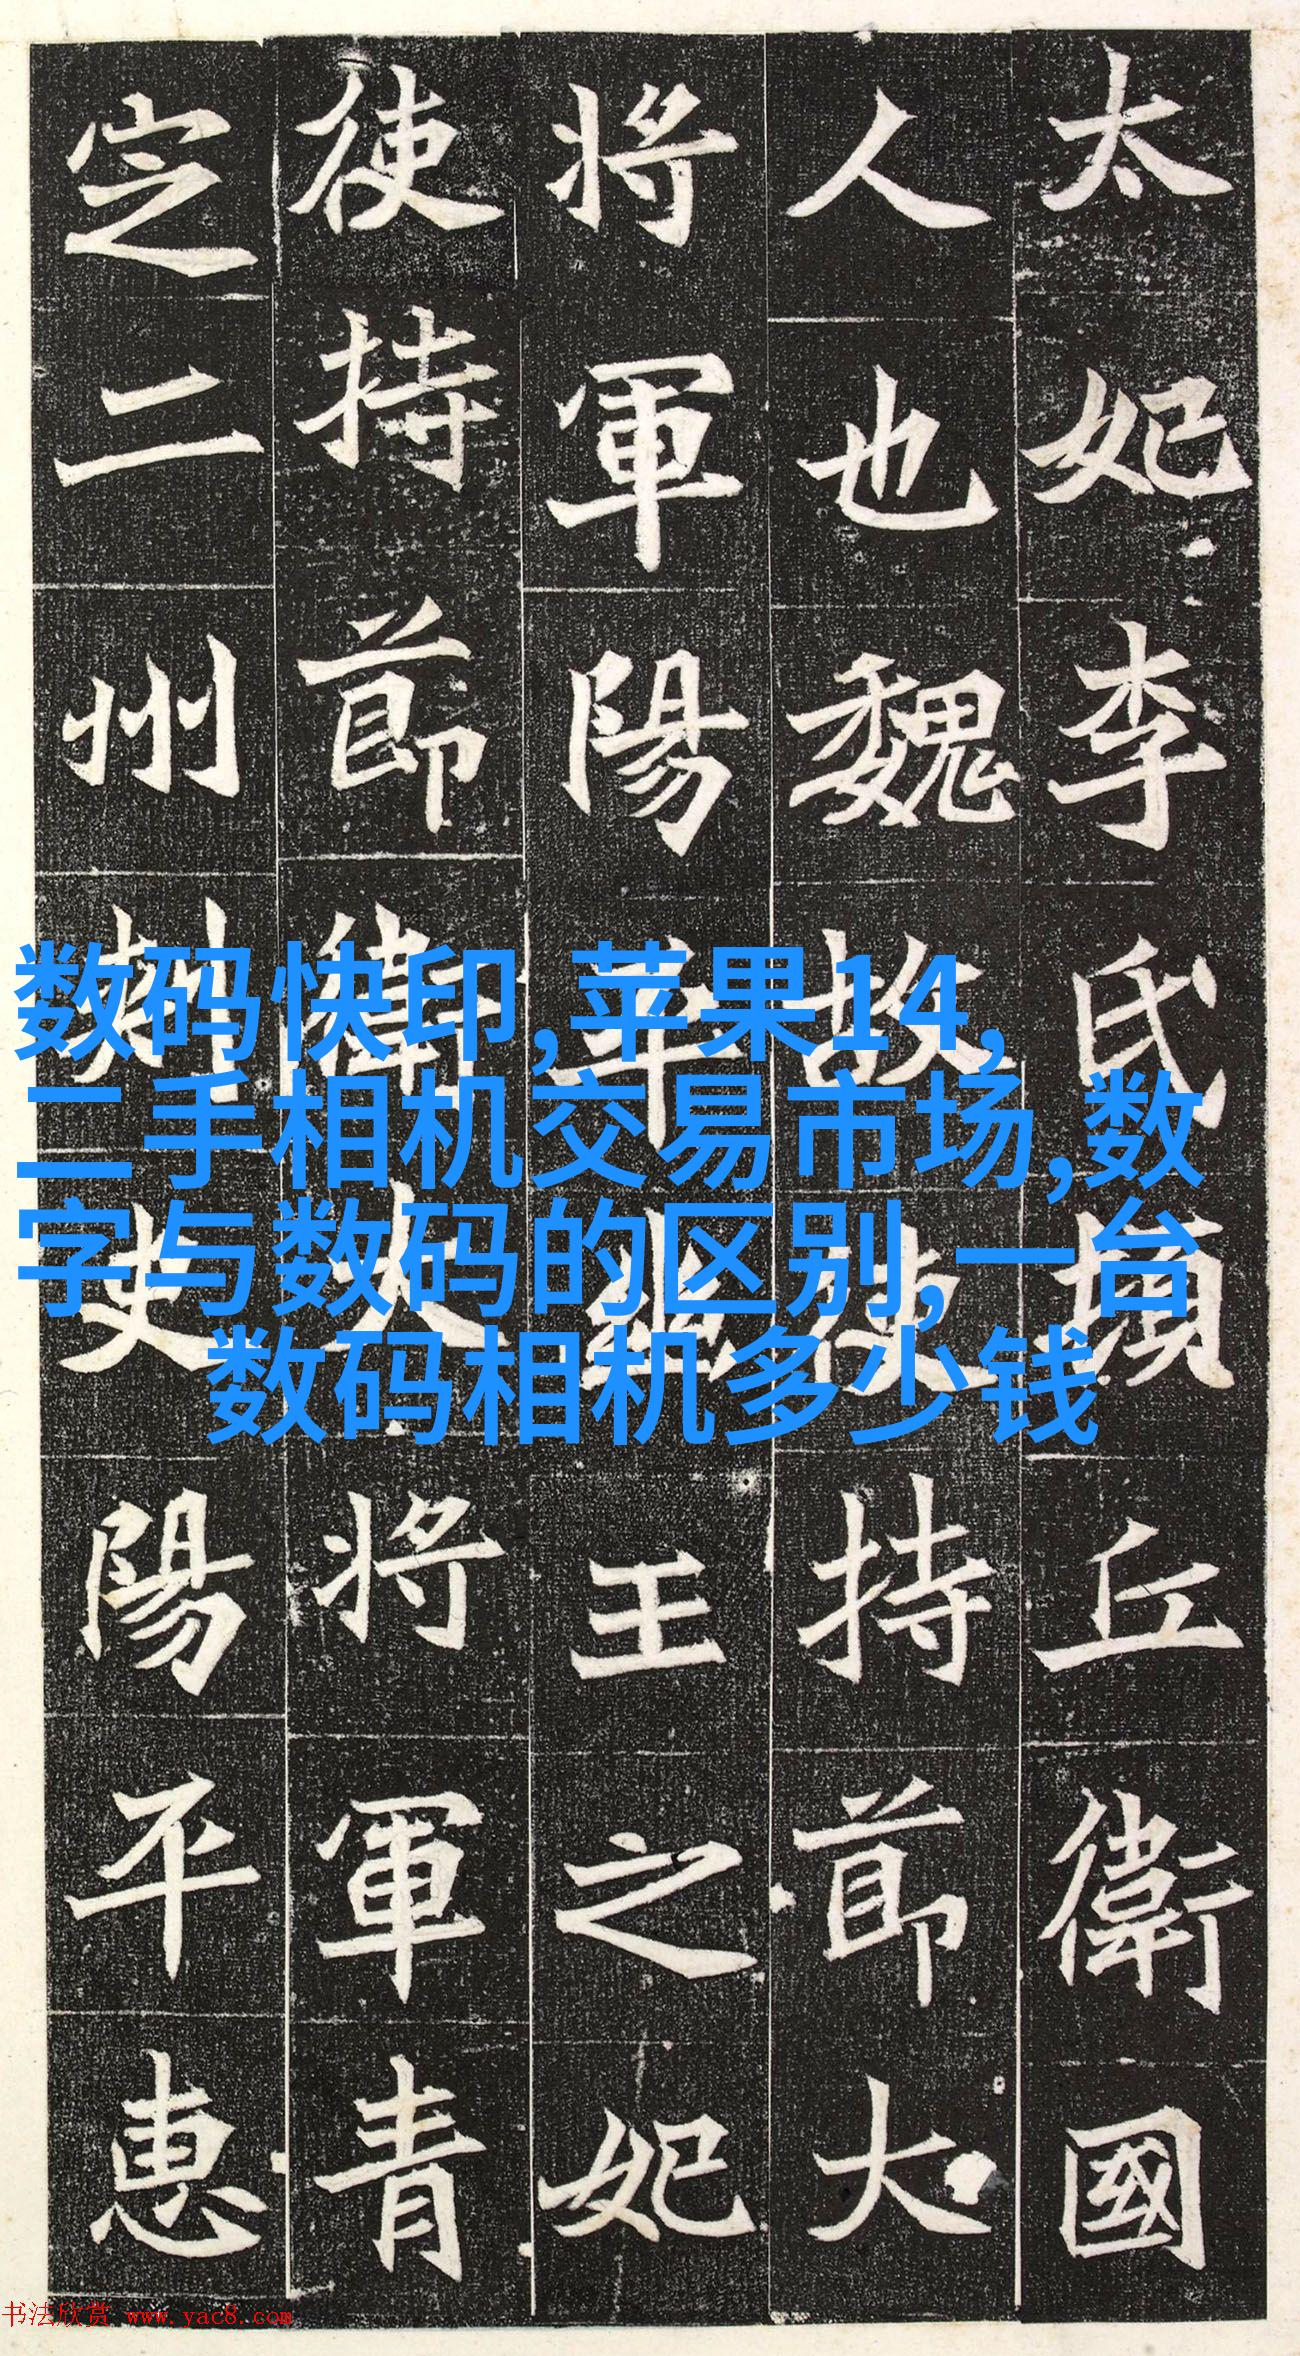 太妃李氏頓丘衛國
人也魏故使持節大
將軍陽平幽王之妃
使持節衛大將軍青
定二州刺史陽平惠
数码快印,苹果14,
二手相机交易市场,数
字与数码的区别,一台
数码相机多少钱
书法欣赏 www.yac8.com